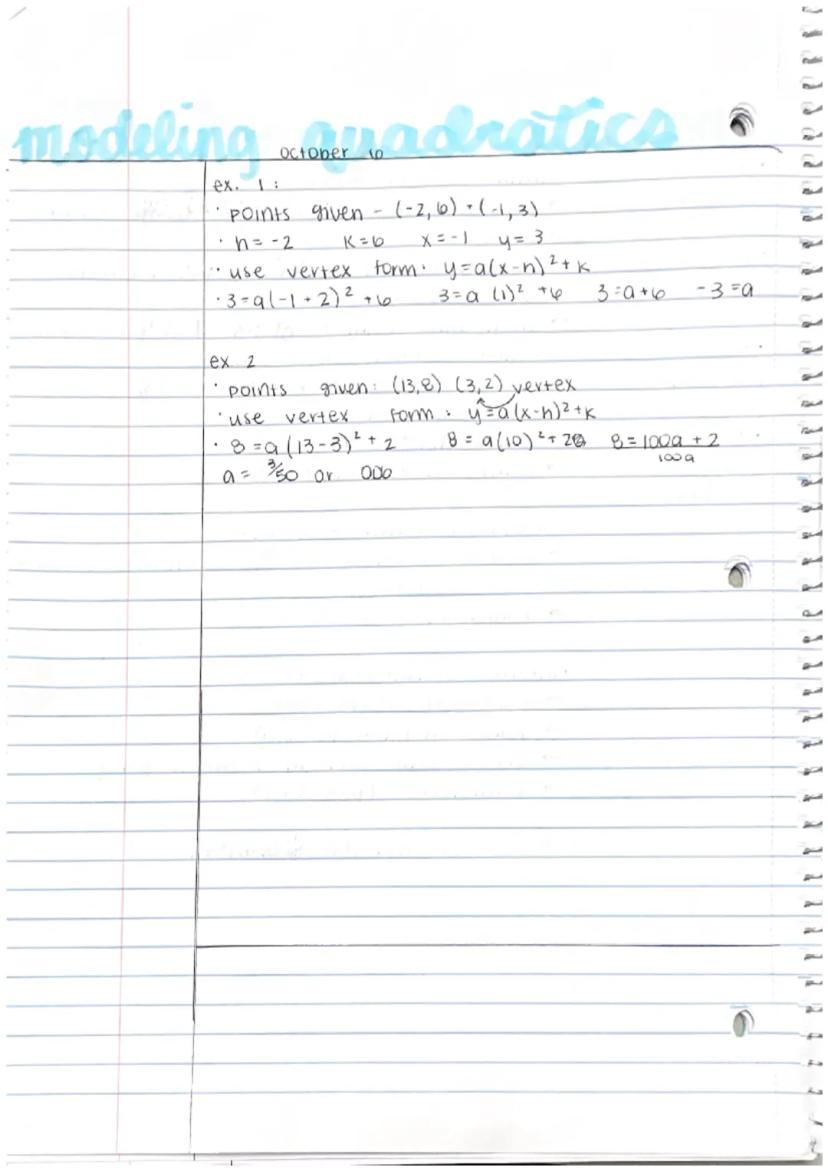 modeling quadratics
october 10
ex. 1:
· points given - (-2, 6) · (-1, 3)
· h = -2 K = 6 x = -1 y = 3
· use vertex form · y = a(x-h)² + k
· 3 = a(-1 + 2)² + 6 3 = a (1)² + 6 3 = a + 6 -3 = a
ex 2
· points given: (13, 8) (3, 2) vertex
· use vertex form · y = a(x-h)² + k
· 8 = a (13-3)² + 2 8 = a(10)² + 2 8 = 100a + 2
100a
a = 3/50 or 006